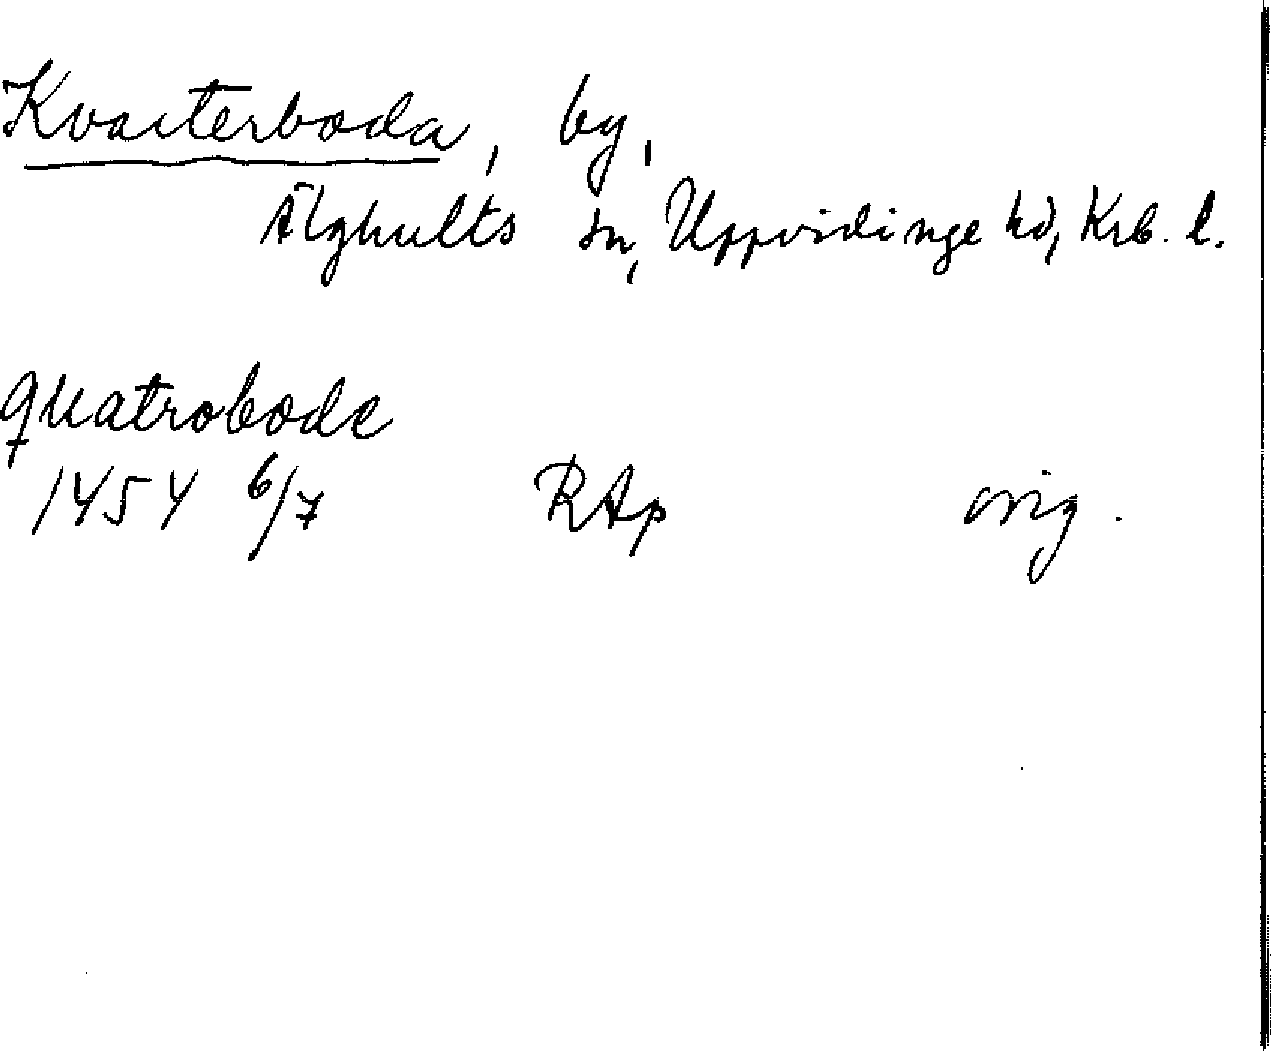 Kvarterboda, by,
Älghults sn, Uppvidinge hd, Krb. l.
quatrobode
1454 6/7 RAp orig.